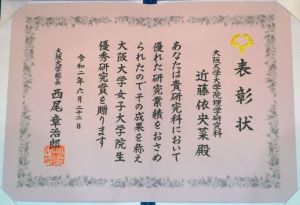 表彰状
大阪大学大学院理学研究科
近藤 依央菜 殿
あなたは貴研究科において
優れた研究業績をおさめ
られたのでその成果を称え
大阪大学女子大学院生
優秀研究賞を贈ります
令和二年六月二十三日
大阪大学総長 西尾章治郎